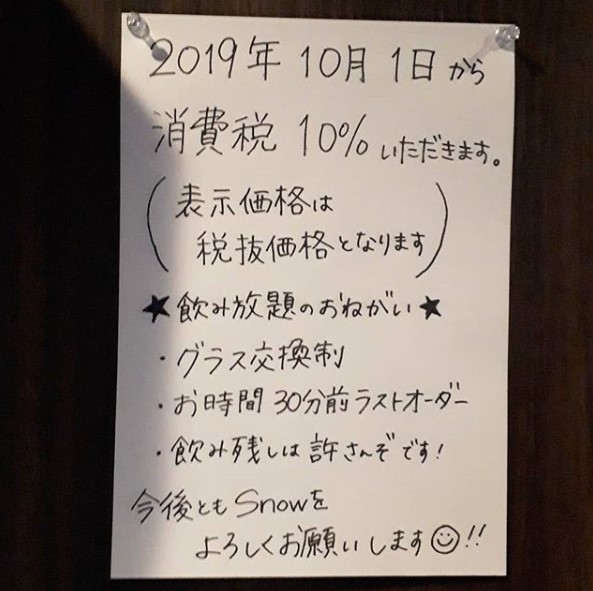 2019年 10月 1日から
消費税 10% いただきます。
(表示価格は
税抜価格となります)
★飲み放題のおねがい★
・グラス交換制
・お時間30分前ラストオーダー
・飲み残しは許さんぞです!
今後ともSnowを
よろしくお願いします☺!!